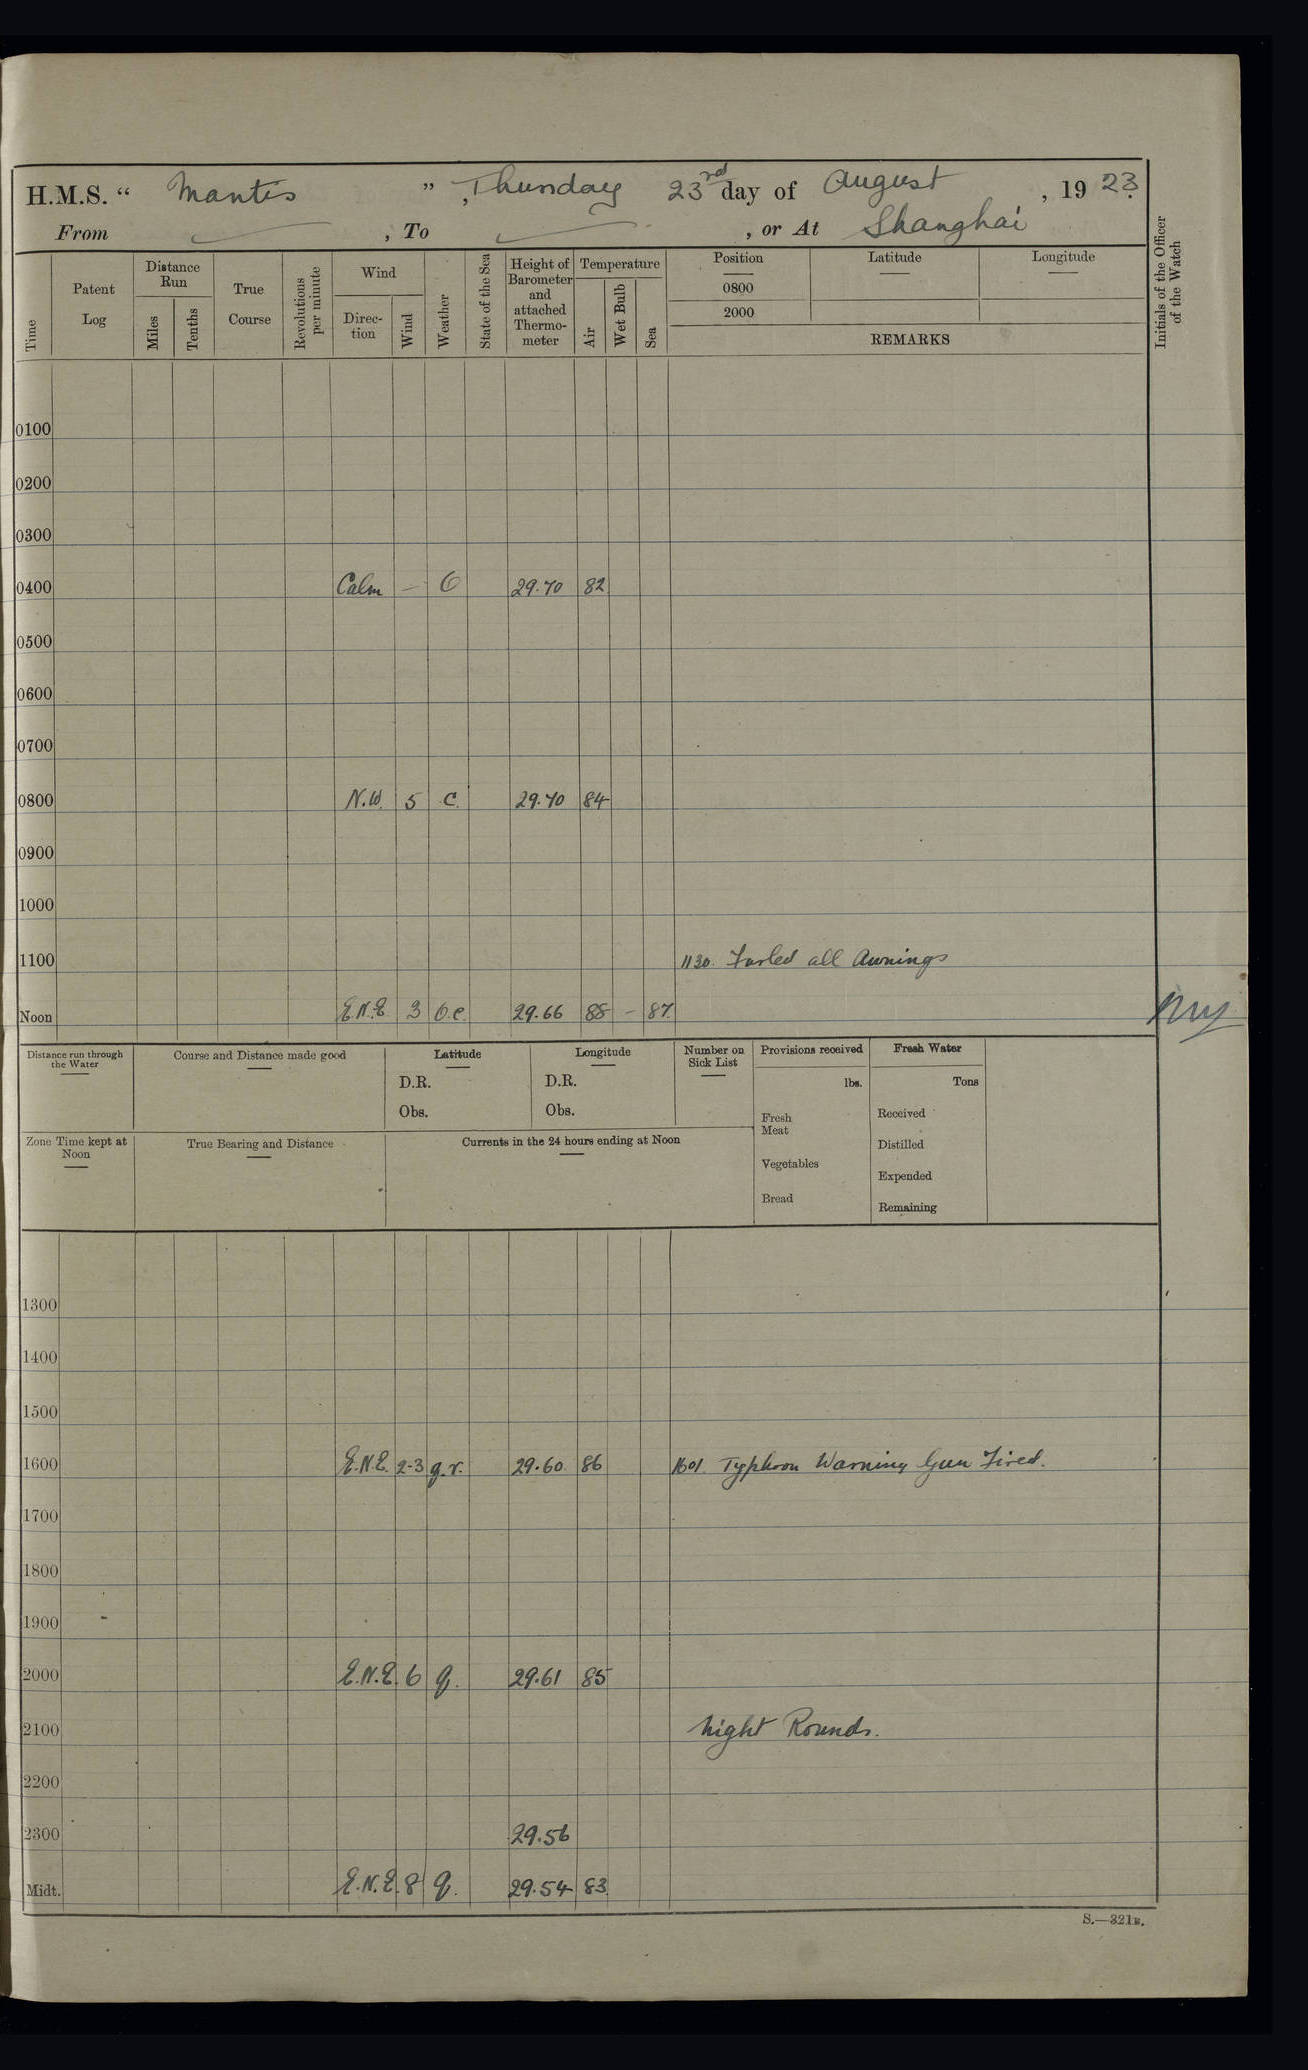 H.M.S. “ Mantis ” , Thursday 23rd day of August , 19 23.
From , To , or At Shanghai
Time
Patent Log
Distance Run
Miles
Tenths
True Course
Revolutions per minute
Wind
Direc-tion
Wind
Weather
State of the Sea
Height of Barometer and attached Thermo-meter
Temperature
Air
Wet Bulb
Sea
Position Latitude Longitude
0800
2000
REMARKS
Initials of the Officer of the Watch
0100
0200
0300
0400 Calm — O 29.70 82
0500
0600
0700
0800 N.W. 5 c. 29.70 84
0900
1000
1100 1130. Furled all Awnings
Noon E.N.E 3 o.c. 29.66 88 – 87
Distance run through the Water
Course and Distance made good
Latitude
D.R.
Obs.
Longitude
D.R.
Obs.
Number on Sick List
Provisions received
lbs.
Fresh Meat
Vegetables
Bread
Fresh Water
Tons
Received
Distilled
Expended
Remaining
Zone Time kept at Noon
True Bearing and Distance
Currents in the 24 hours ending at Noon
1300
1400
1500
1600 E.N.E. 2-3 q.r. 29.60 86 1601. Typhoon Warning Gun Fired.
1700
1800
1900
2000 E.N.E. 6 q. 29.61 85
2100 Night Rounds.
2200
2300 29.56
Midt. E.N.E. 8 q. 29.54 83
S.—321B.